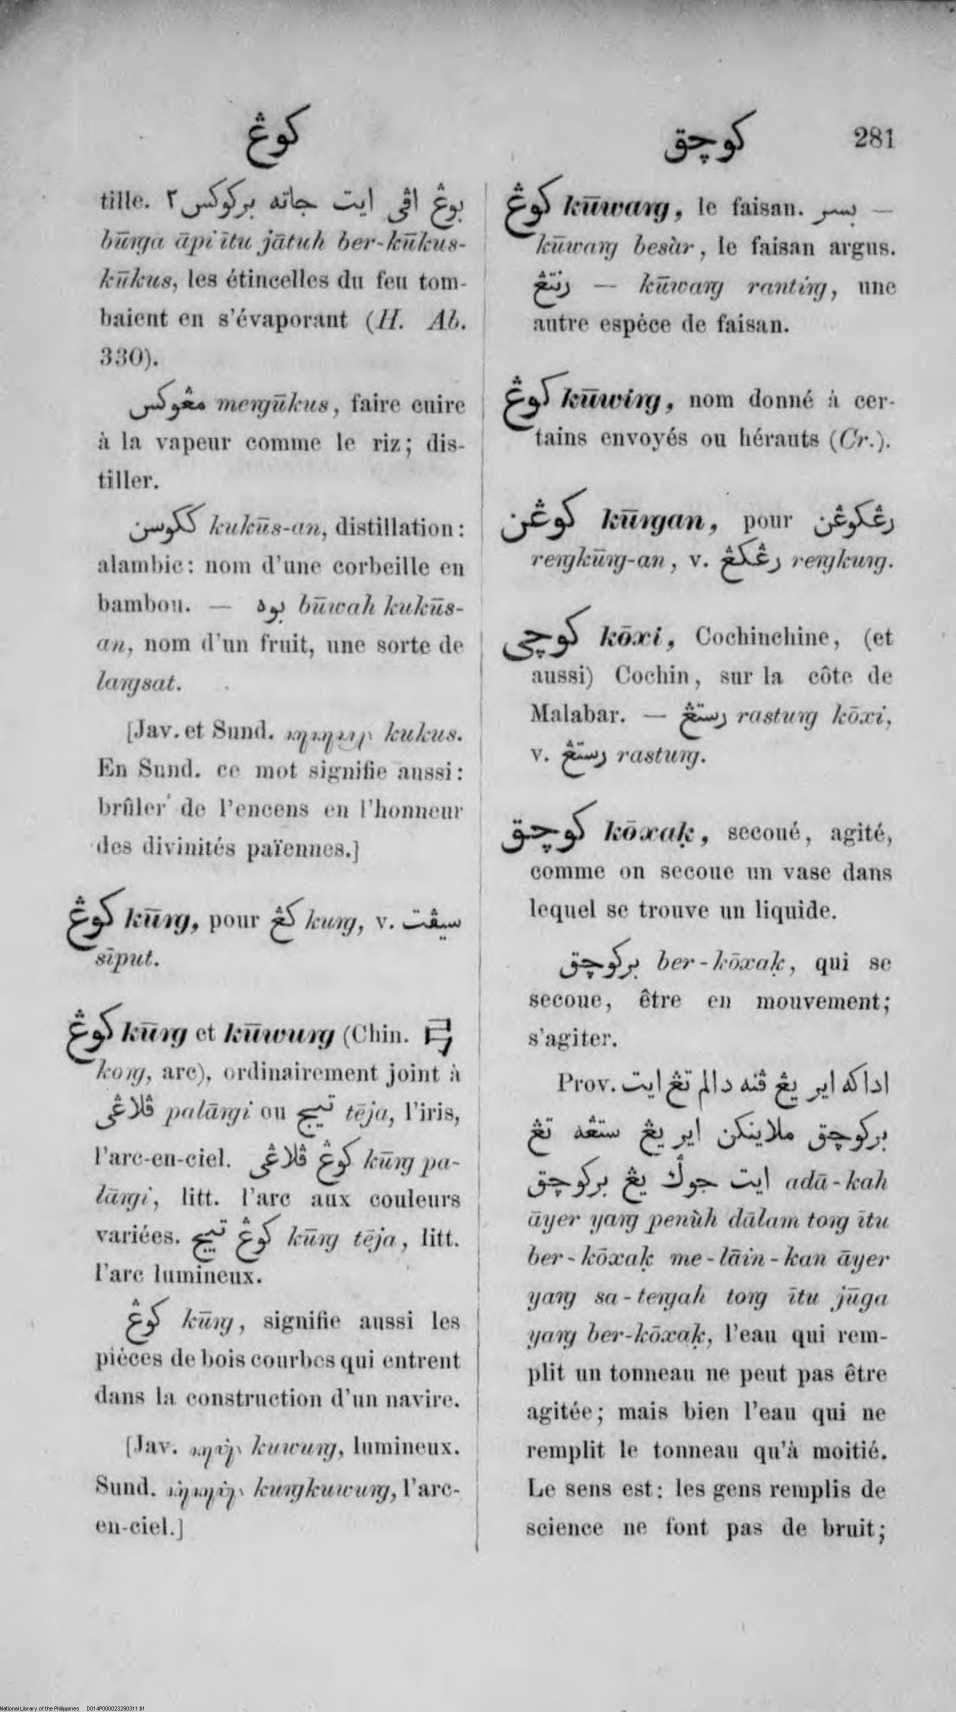 کوڠ
کوچق 281
tille. بوڠ اڤي ايت جاته برکوکس٢
būrga āpi ītu jātuh ber-kūkus-
kūkus, les étincelles du feu tom-
baient en s'évaporant (H. Ab.
330).
مڠوکس mergūkus, faire cuire
à la vapeur comme le riz; dis-
tiller.
ککوسن kukūs-an, distillation:
alambic: nom d'une corbeille en
bambou. — بوه būwah kukūs-
an, nom d'un fruit, une sorte de
largsat.
[Jav. et Sund. kukus.
En Sund. ce mot signifie aussi:
brûler de l'encens en l'honneur
des divinités païennes.]
کوڠ kūrg, pour کڠ kurg, v. سيڤت
sīput.
کوڠ kūrg et kūwurg (Chin. 弓
korg, arc), ordinairement joint à
ڤلاڠي palārgi ou تيج tēja, l'iris,
l'arc-en-ciel. کوڠ ڤلاڠي kūrg pa-
lārgi, litt. l'arc aux couleurs
variées. کوڠ تيج kūrg tēja, litt.
l'arc lumineux.
کوڠ kūrg, signifie aussi les
pièces de bois courbes qui entrent
dans la construction d'un navire.
[Jav. kuwurg, lumineux.
Sund. kurgkuwurg, l'arc-
en-ciel.]
کوڠ kūwarg, le faisan. بسر —
kūwarg besàr, le faisan argus.
رنتڠ — kūwarg rantirg, une
autre espèce de faisan.
کوڠ kūwirg, nom donné à cer-
tains envoyés ou hérauts (Cr.).
کوڠن kūrgan, pour رڠکوڠن
rergkūrg-an, v. رڠکڠ rergkurg.
کوچي kōxi, Cochinchine, (et
aussi) Cochin, sur la côte de
Malabar. — رستڠ rasturg kōxi,
v. رستڠ rasturg.
کوچق kōxaḳ, secoué, agité,
comme on secoue un vase dans
lequel se trouve un liquide.
برکوچق ber-kōxaḳ, qui se
secoue, être en mouvement;
s'agiter.
Prov. اداکه اير يڠ ڤنه دالم تڠ ايت
برکوچق ملاينکن اير يڠ ستڠه تڠ
ايت جوݢ يڠ برکوچق adā-kah
āyer yarg penùh dālam torg ītu
ber-kōxaḳ me-lāin-kan āyer
yarg sa-tergah torg ītu jūga
yarg ber-kōxaḳ, l'eau qui rem-
plit un tonneau ne peut pas être
agitée; mais bien l'eau qui ne
remplit le tonneau qu'à moitié.
Le sens est: les gens remplis de
science ne font pas de bruit;
National Library of the Philippines